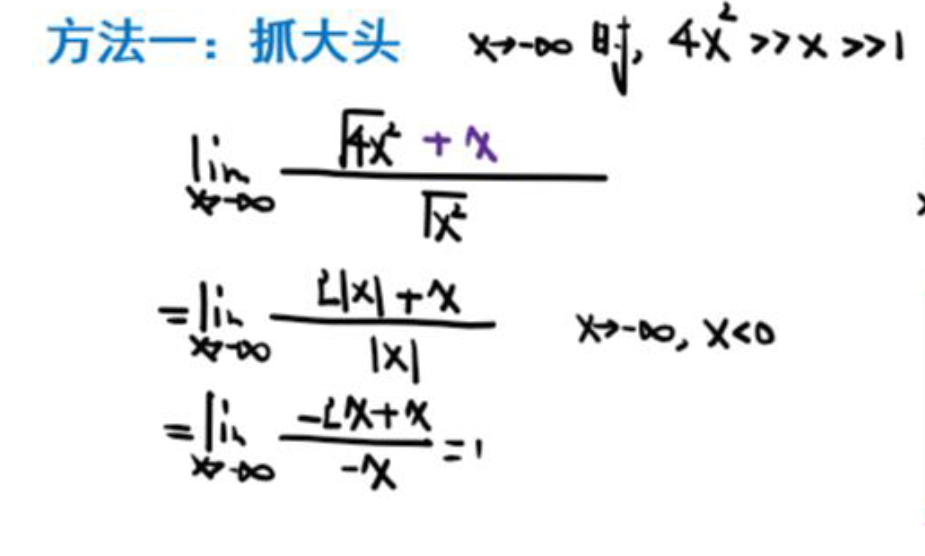 方法一：抓大头 x→-∞ 时, 4x² >> x >> 1
lim x→-∞ (√4x² + x) / √x²
= lim x→-∞ (2|x| + x) / |x| x→-∞, x<0
= lim x→-∞ (-2x + x) / -x = 1